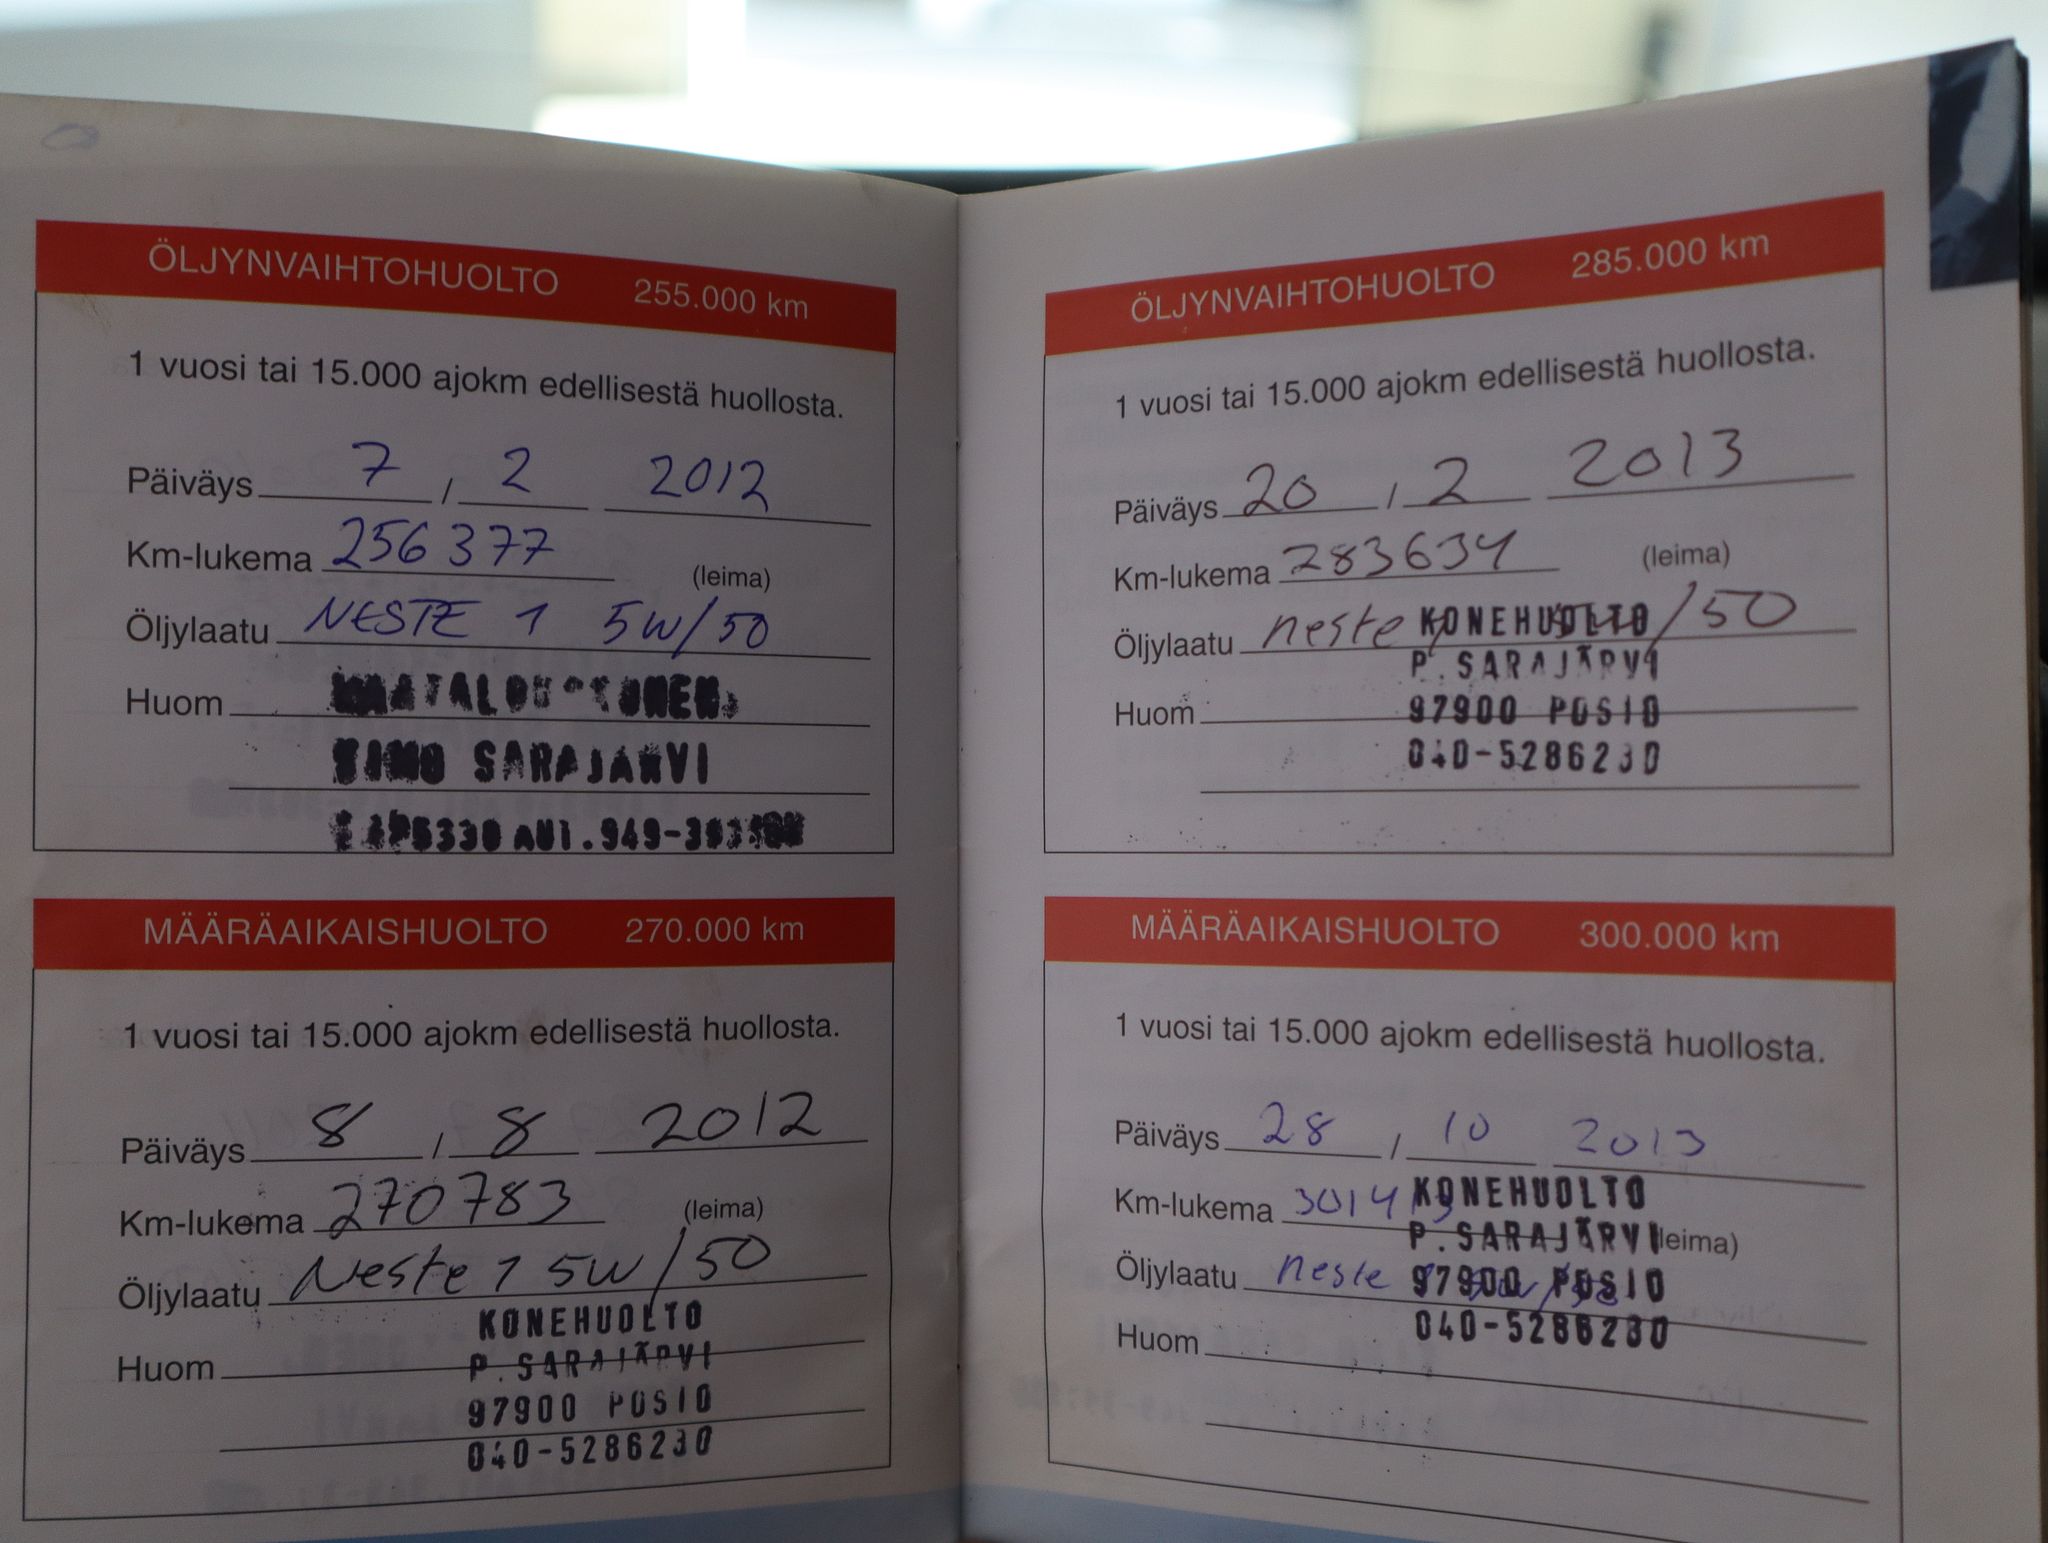 ÖLJYNVAIHTOHUOLTO 255.000 km
1 vuosi tai 15.000 ajokm edellisestä huollosta.
Päiväys 7 / 2 2012
Km-lukema 256377 (leima)
Öljylaatu NESTE 1 5W/50
Huom
SARAJARVI
MÄÄRÄAIKAISHUOLTO 270.000 km
1 vuosi tai 15.000 ajokm edellisestä huollosta.
Päiväys 8 / 8 2012
Km-lukema 270783 (leima)
Öljylaatu Neste 1 5W/50
KONEHUOLTO
Huom P. SARAJÄRVI
97900 POSIO
040-5286230
ÖLJYNVAIHTOHUOLTO 285.000 km
1 vuosi tai 15.000 ajokm edellisestä huollosta.
Päiväys 20 / 2 2013
Km-lukema 283634 (leima)
Öljylaatu neste /50
KONEHUOLTO
P. SARAJÄRVI
Huom 97900 POSIO
040-5286230
MÄÄRÄAIKAISHUOLTO 300.000 km
1 vuosi tai 15.000 ajokm edellisestä huollosta.
Päiväys 28 / 10 2013
KONEHUOLTO
Km-lukema
P. SARAJÄRVI (leima)
Öljylaatu neste
97900 POSIO
040-5286230
Huom